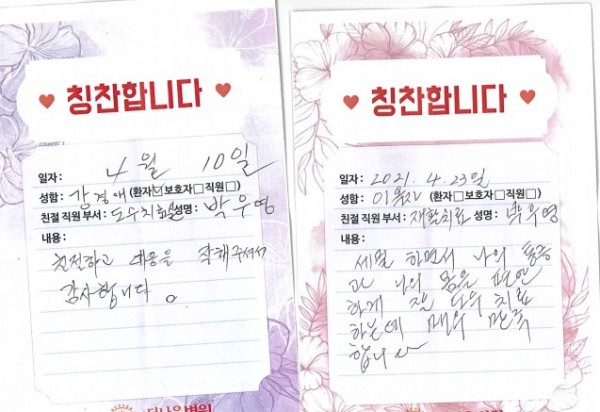 칭찬합니다
일자: 4월 10일
성함: 감경애 (환자☑보호자☐직원☐)
친절 직원 부서: 도수치료실 성명: 박우영
내용:
친절하고 대응을 잘해주셔서
감사합니다.
칭찬합니다
일자: 2021. 4. 23일
성함: (환자☐보호자☐직원☐)
친절 직원 부서: 재활치료 성명: 박우영
내용:
세밀 하면서 나의 통증
과 나의 몸을 편안
하게 잘 도수 치료
하는데 매우 만족
합니다